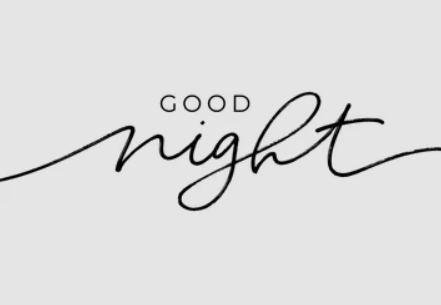 GOOD
night